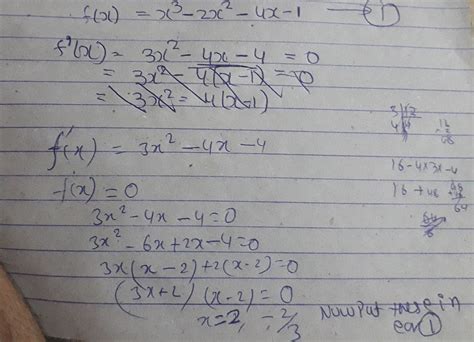 f(x) = x³ - 2x² - 4x - 1 → ①
f'(x) = 3x² - 4x - 4 = 0
= 3x² - 4(x-1) = 0
= 3x² = 4(x-1)
f'(x) = 3x² - 4x - 4
f(x) = 0
3x² - 4x - 4 = 0
3x² - 6x + 2x - 4 = 0
3x(x-2) + 2(x-2) = 0
(3x+2) (x-2) = 0
x = 2, -2/3
Now Put these in
eqn ①
16 - 4x3x-4
16 + 48
64